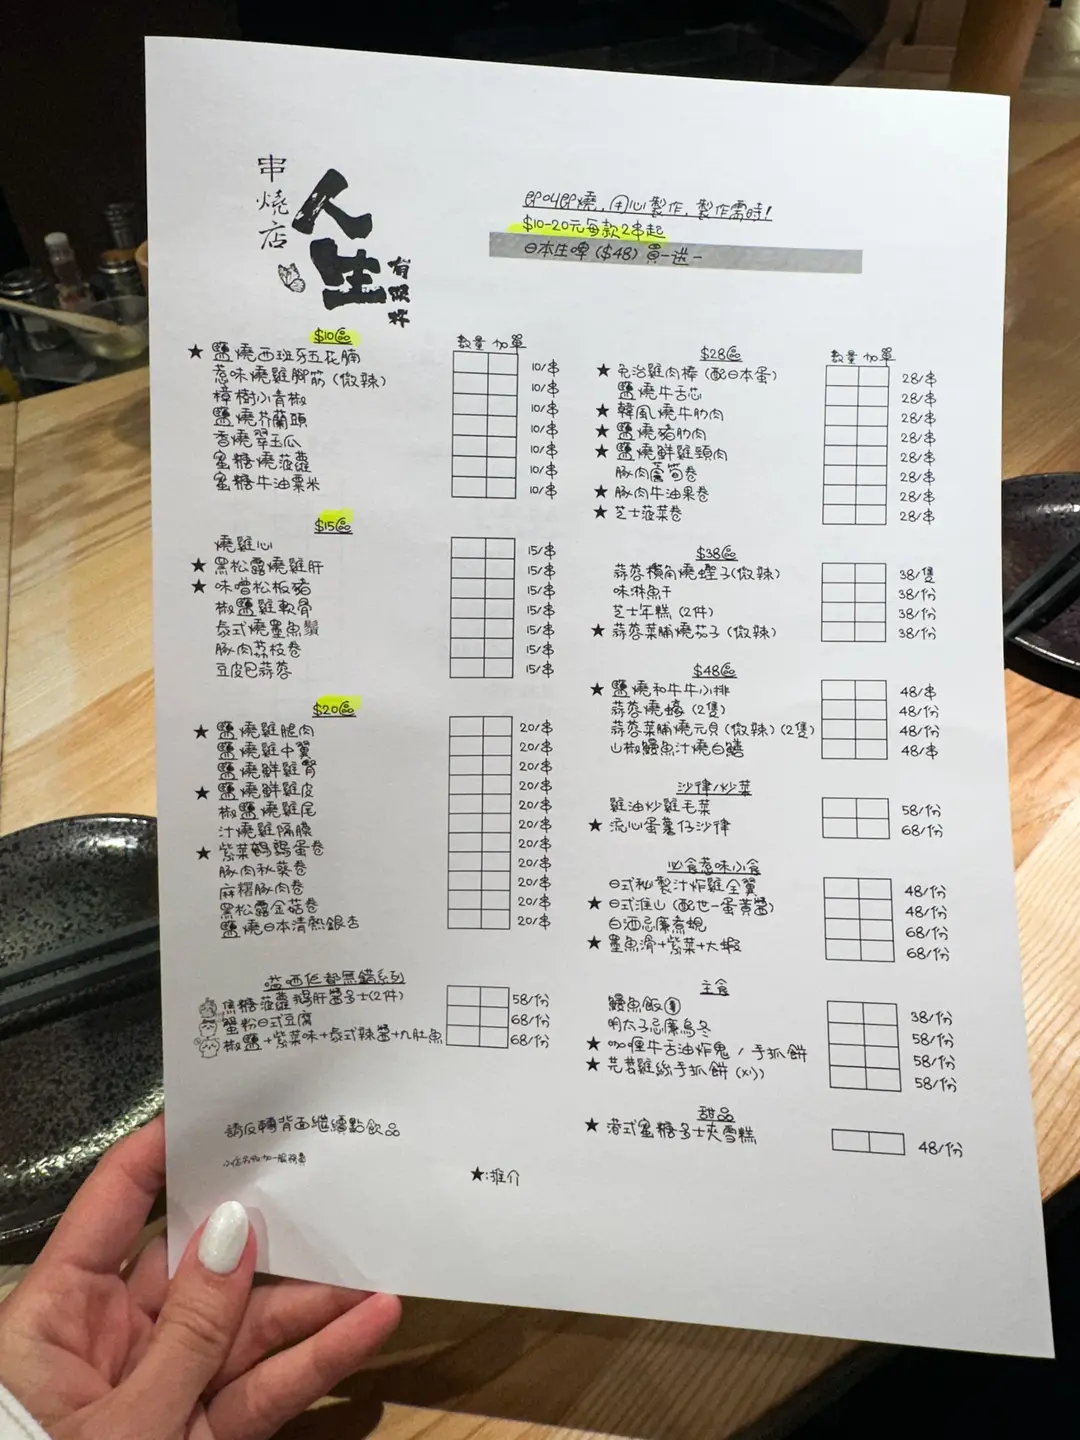 串燒店
人生
有限杯
即叫即燒，用心製作，製作需時！
$10-20元每款2串起
日本生啤 ($48) 買一送一
$10區
數量 加單
★ 鹽燒西班牙五花腩 10/串
惹味燒雞腳筋 (微辣) 10/串
樟樹小青椒 10/串
鹽燒芥蘭頭 10/串
香燒翠玉瓜 10/串
蜜糖燒菠蘿 10/串
蜜糖牛油粟米 10/串
$15區
燒雞心 15/串
★ 黑松露燒雞肝 15/串
★ 味噌松板豬 15/串
椒鹽雞軟骨 15/串
泰式燒墨魚鬚 15/串
豚肉荔枝卷 15/串
豆皮包蒜蓉 15/串
$20區
★ 鹽燒雞腿肉 20/串
鹽燒雞中翼 20/串
鹽燒鮮雞腎 20/串
★ 鹽燒鮮雞皮 20/串
椒鹽燒雞尾 20/串
汁燒雞隔膜 20/串
★ 紫菜鵪鶉蛋卷 20/串
豚肉秋葵卷 20/串
麻糬豚肉卷 20/串
黑松露金菇卷 20/串
鹽燒日本清熱銀杏 20/串
嗌哂佢都無錯系列
焦糖菠蘿鵝肝醬多士(2件) 58/份
蟹粉日式豆腐 68/份
椒鹽+紫菜味+泰式辣醬+九肚魚 68/份
請反轉背面繼續點飲品
小店另加加一服務費
$28區
數量 加單
★ 免治雞肉棒 (配日本蛋) 28/串
鹽燒牛舌芯 28/串
★ 韓風燒牛肋肉 28/串
★ 鹽燒豬肋肉 28/串
★ 鹽燒鮮雞頸肉 28/串
豚肉蘆筍卷 28/串
★ 豚肉牛油果卷 28/串
★ 芝士菠菜卷 28/串
$38區
蒜蓉橫角燒蟶子(微辣) 38/隻
味淋魚干 38/份
芝士年糕 (2件) 38/份
★ 蒜蓉菜脯燒茄子 (微辣) 38/份
$48區
★ 鹽燒和牛牛小排 48/串
蒜蓉燒蠔 (2隻) 48/份
蒜蓉菜脯燒元貝 (微辣) (2隻) 48/份
山椒鰻魚汁燒白鱔 48/串
沙律/炒菜
雞油炒雞毛菜 58/份
★ 流心蛋薯仔沙律 68/份
必食惹味小食
日式秘製汁炸雞全翼 48/份
★ 日式淮山 (配世一蛋黃醬) 48/份
白酒忌廉煮蜆 68/份
★ 墨魚滑+紫菜+大蝦 68/份
主食
鰻魚飯 38/份
明太子忌廉烏冬 58/份
★ 咖喱牛舌油炸鬼 / 手抓餅 58/份
★ 芫荽雞絲手抓餅 (X1) 58/份
甜品
★ 港式蜜糖多士夾雪糕 48/份
★:推介